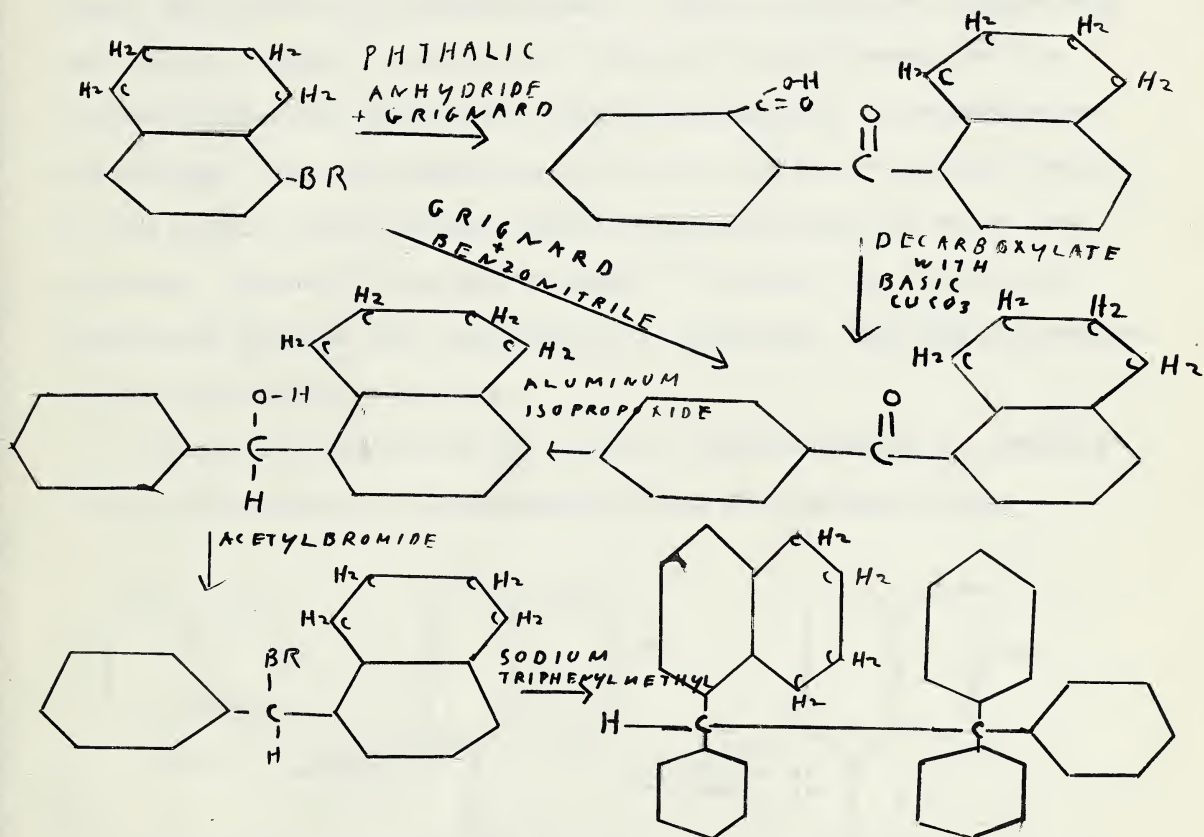 H2 C C H2
H2 C C H2
-BR
PHTHALIC
ANHYDRIDE
+ GRIGNARD
O-H
C=O
O
C
H2 C C H2
H2 C C H2
GRIGNARD
+
BENZONITRILE
DECARBOXYLATE
WITH
BASIC
CUCO3
H2 C C H2
H2 C C H2
O
C
ALUMINUM
ISOPROPOXIDE
H2 C C H2
H2 C C H2
O-H
C
H
ACETYLBROMIDE
H2 C C H2
H2 C C H2
BR
C
H
SODIUM
TRIPHENYLMETHYL
C H2
C H2
C H2
C H2
H C C